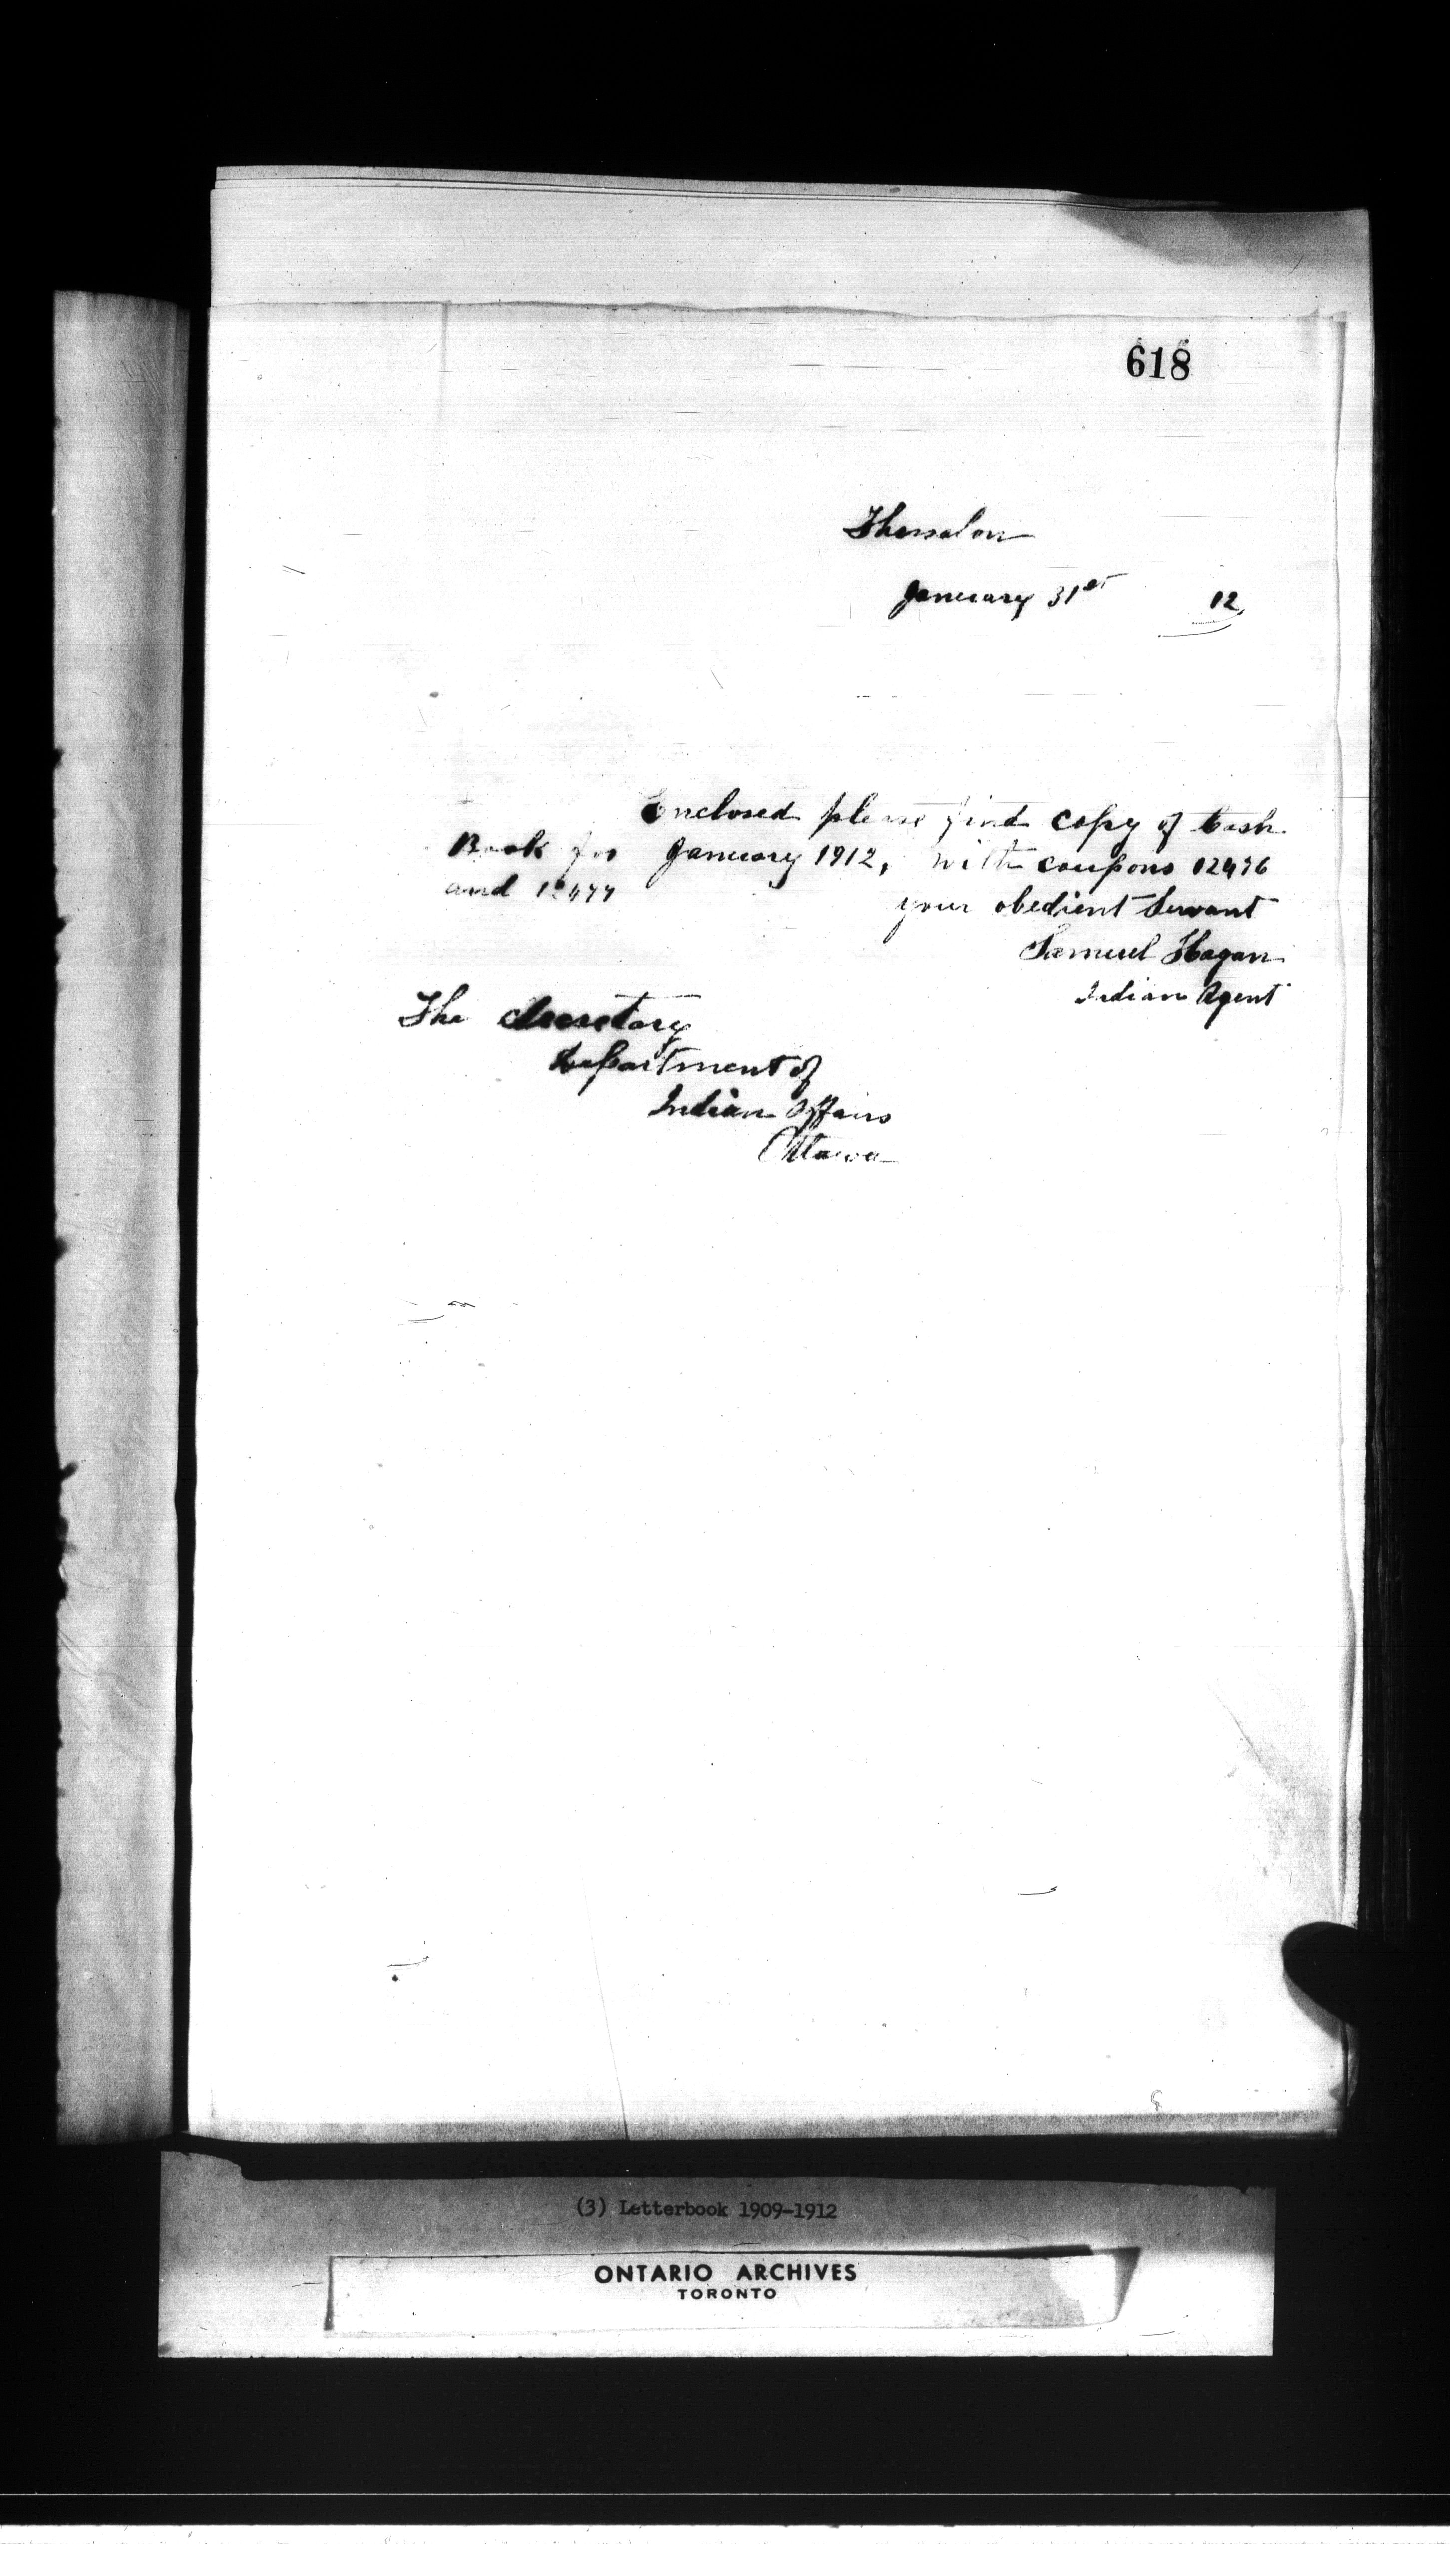 618
Thessalon
January 31st 12
Enclosed please find copy of Cash
Book for January 1912, with coupons 12476
and 12477
your obedient Servant
Samuel Hagan
Indian Agent
The Secretary
Department of
Indian Affairs
Ottawa
(3) Letterbook 1909-1912
ONTARIO ARCHIVES
TORONTO